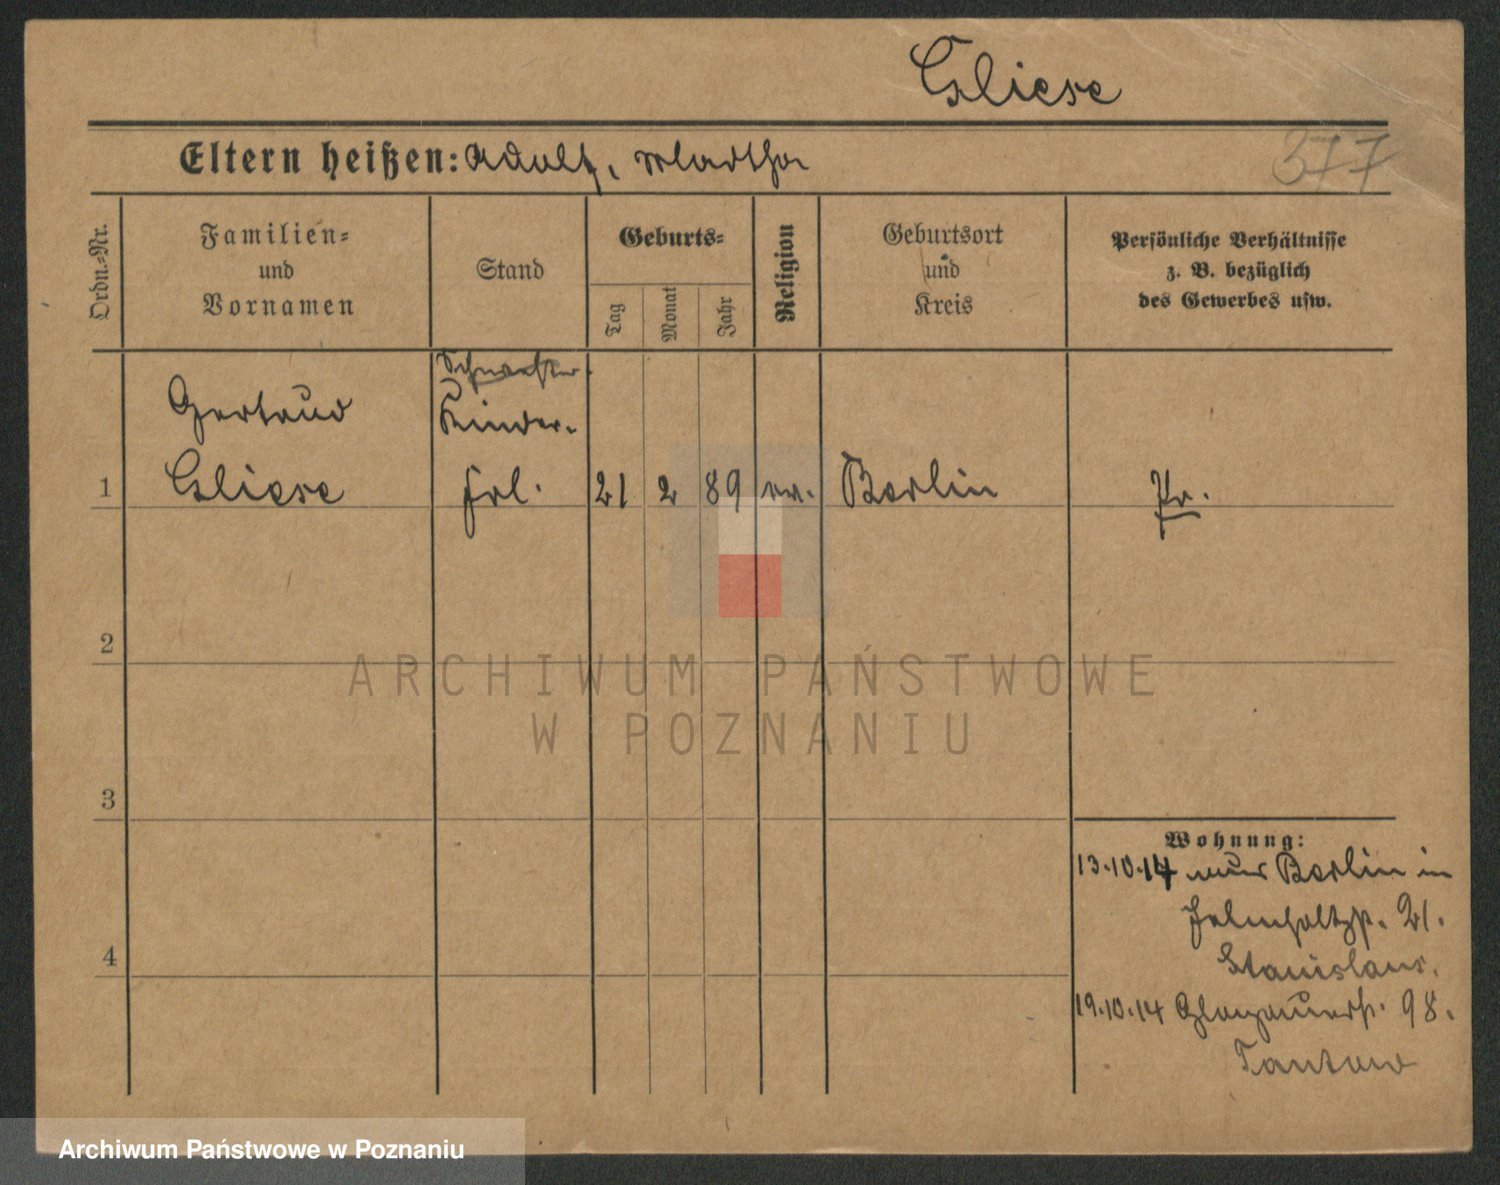 Gliese
377
Eltern heißen: Adolf, Martha
Ordn.-Nr.
Familien-
und
Vornamen
Stand
Geburts-
Tag
Monat
Jahr
Religion
Geburtsort
und
Kreis
Persönliche Verhältnisse
z. B. bezüglich
des Gewerbes usw.
Schwester
Gertrud
Kinder-
1
Gliese
Frl.
21
2
89
ev.
Berlin
Pr.
2
ARCHIWUM PAŃSTWOWE
W POZNANIU
3
Wohnung:
13.10.14 Berlin in
Helmholtzstr. 21.
Stanislaus.
4
19.10.14 Glogauerstr. 98.
Archiwum Państwowe w Poznaniu